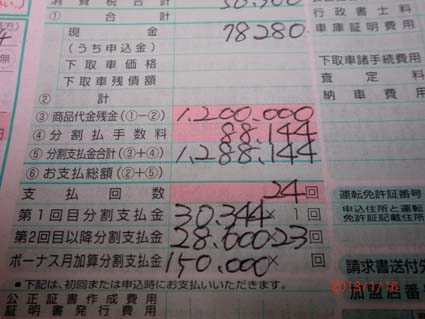 消費税合計
① 合計
現金
(うち申込金) 78280
下取車価格
下取車残債額
② 計
③ 商品代金残金(①-②) 1,200,000
④ 分割払手数料 88,144
⑤ 分割支払金合計(③+④) 1,288,144
⑥ お支払総額(②+⑤)
支払回数 24回
第1回目分割支払金 30,344× 1回
第2回目以降分割支払金 28,000×23回
ボーナス月加算分割支払金 150,000× 回
●下記は、初回または申込時にお支払いいただきます。
公正証書作成費用
証明書発行費用
無
行政書士料
車庫証明費用
下取車諸手続費用
査定料
納車費用
運転免許証番号
申込住所と運転
免許証記載住所
請求書送付先
加盟店番
2013/1/16